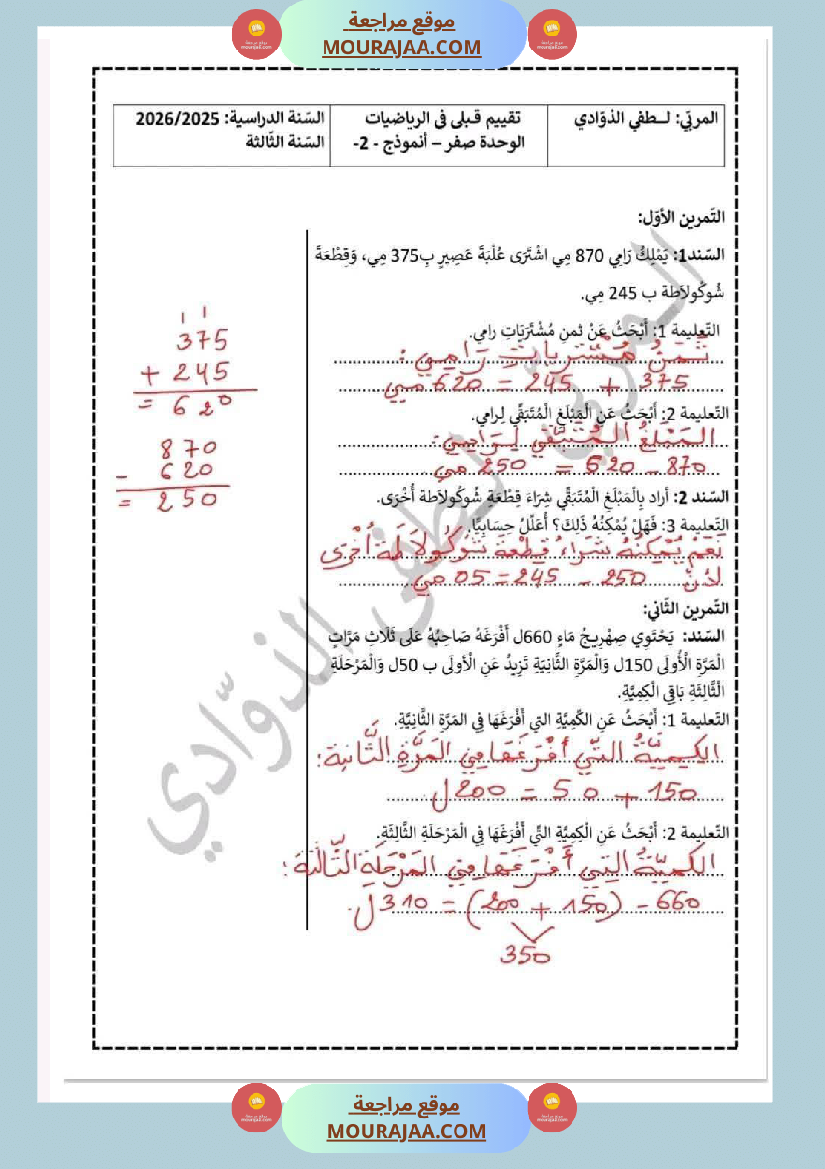 موقع مراجعة
MOURAJAA.COM
المربّي: لــطفي الذوّادي
تقييم قبلى فى الرياضيات
الوحدة صفر – أنموذج - 2-
السّنة الدراسية: 2026/2025
السّنة الثّالثة
التّمرين الأوّل:
السّند1: يَمْلِكُ رَامِي 870 مِي اشْتَرَى عُلْبَةَ عَصِيرٍ بِ375 مِي، وَقِطْعَةَ
شُوكُولاَطة ب 245 مِي.
التّعليمة 1: أَبْحَثُ عَنْ ثَمنِ مُشْتَرَيَاتِ رامِي.
ثَمَنُ مُشْتَرياتِ رَامِي :
375 + 245 = 620 مي
التّعليمة 2: أَبْحَثُ عَنِ الْمَبْلغِ الْمُتَبَقِّي لِرامِي.
المَبْلَغُ المُتَبَقِّي لِرَامِي:
870 – 620 = 250 مي
السّند 2: أراد بِالْمَبْلَغِ الْمُتَبَقِّي شِرَاءَ قِطْعَةِ شُوكُولاَطة أُخْرَى.
التّعليمة 3: فَهَلْ يُمْكِنُهُ ذَلِكَ؟ أُعَلِّلُ حِسَابِيًّا.
نَعَمْ يُمْكِنُهُ شِرَاءُ قِطْعَةَ شُوكُولاَطَة أُخْرَى
لأنّ 250 – 245 = 05 مي
1 1
375
+ 245
= 620
870
- 620
= 250
التّمرين الثّاني:
السّند: يَحْتَوِي صِهْرِيجُ مَاءٍ 660ل أَفْرَغَهُ صَاحِبُهُ عَلَى ثَلَاثِ مَرَّاتٍ
الْمَرَّةِ الْأُولَى 150ل وَالْمَرَّةِ الثَّانِيَةِ تَزِيدُ عَنِ الْأولَى ب 50ل وَالْمَرْحَلَةِ
الثَّالِثَةِ بَاقِي الْكِمِيَّةِ.
التّعليمة 1: أَبْحَثُ عَنِ الكّمِيَّةِ التي أَفْرَغَهَا فِي المَرَّةِ الثَّانِيَّةِ.
الكميّةُ التّي أفْرَغَهَا فِي المَرَّةِ الثَّانِية:
150 + 50 = 200 ل
التّعليمة 2: أَبْحَثُ عَنِ الْكِمِيَّةِ التِّي أَفْرَغَهَا فِي الْمَرْحَلَةِ الثَّالِثَةِ.
الكَمِيّةُ التِي أَفْرَغَهَا فِي المَرْحَلَةِ الثَّالِثَةِ:
660 - (150 + 200) = 310 ل
350
المربّي لطفي الذوّادي
موقع مراجعة
MOURAJAA.COM